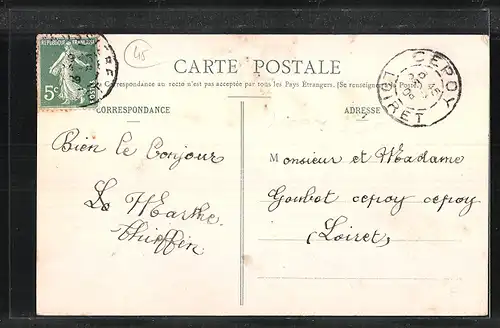 45
REPUBLIQUE FRANÇAISE
5c
CARTE POSTALE
Correspondance au recto n'est pas acceptée par tous les Pays Etrangers. (Se renseigner à la Poste.)
CORRESPONDANCE
ADRESSE
CEPOY
LOIRET
Bien le Bonjour
Marthe
Monsieur et Madame
Goubot cepoy cepoy
(Loiret)